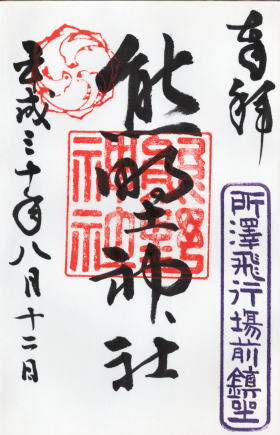 奉拝
所澤飛行場前鎮坐
熊野神社
熊野神社
平成三十年八月十二日